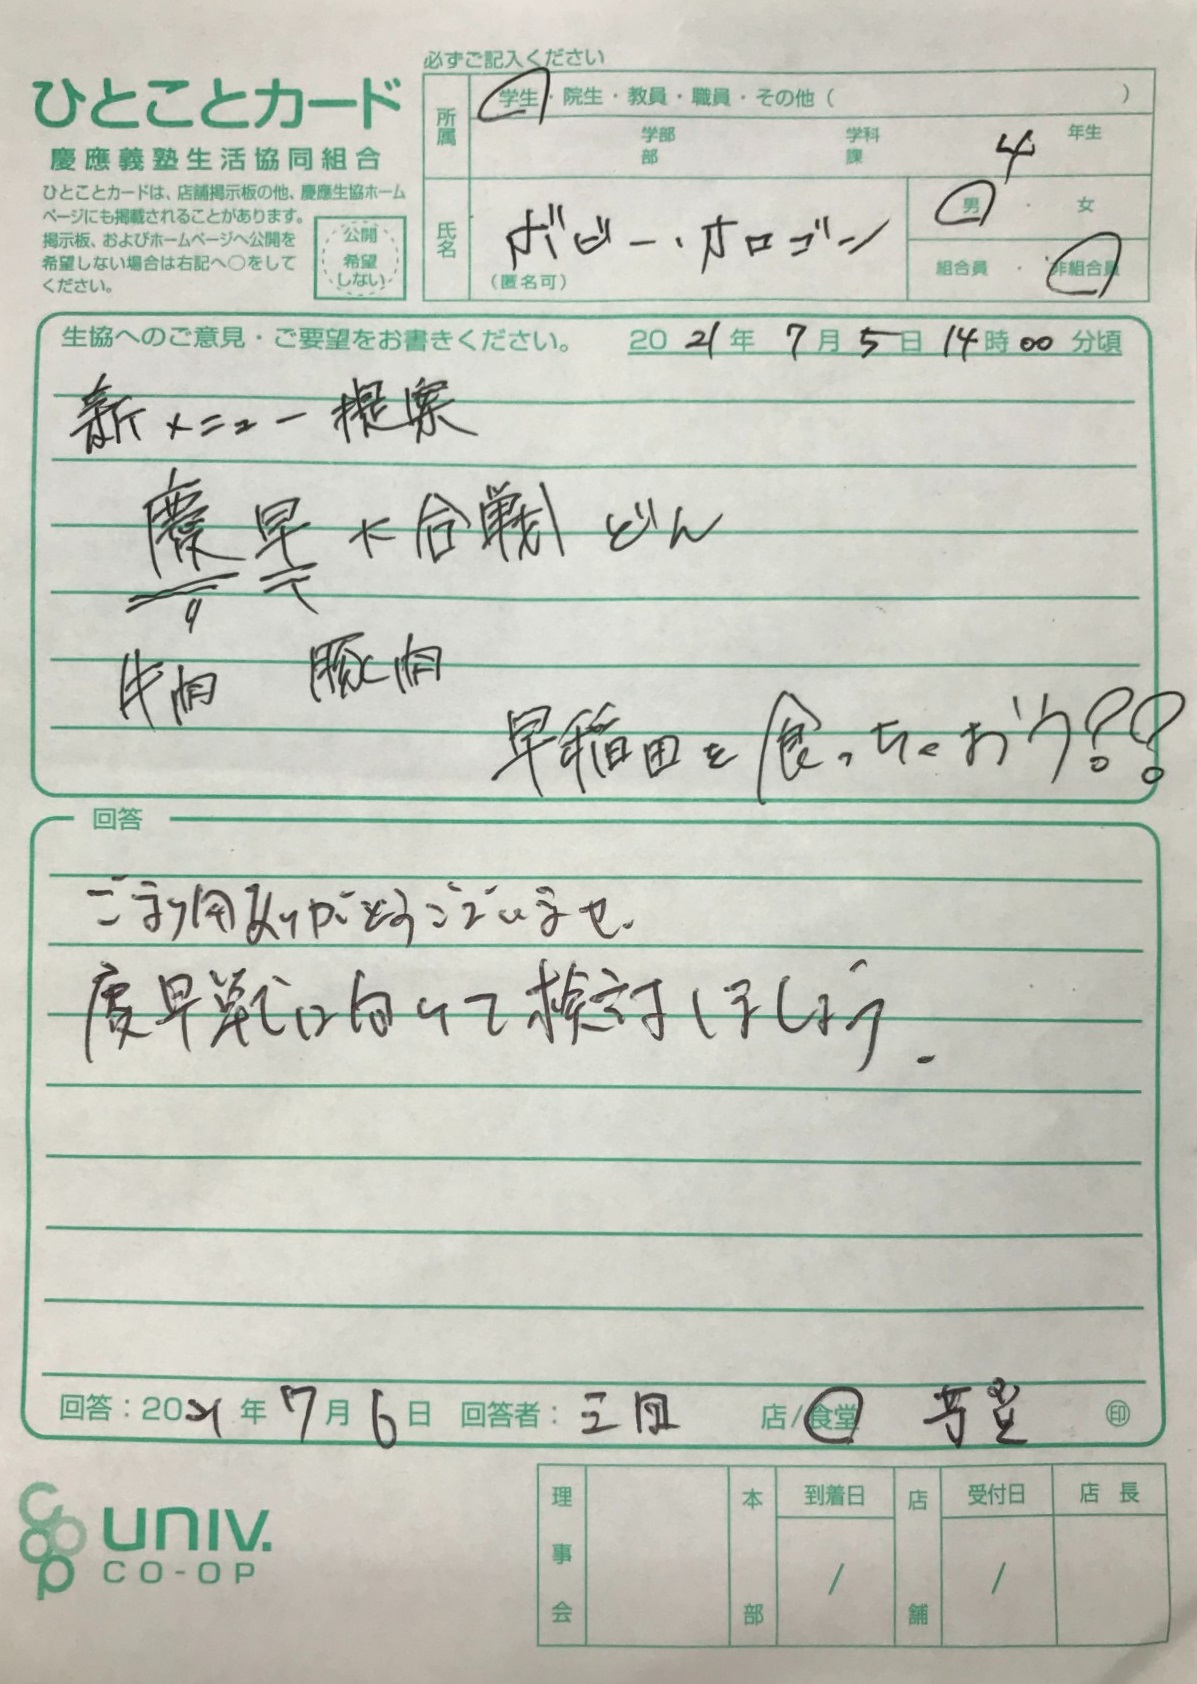 必ずご記入ください
ひとことカード
慶應義塾生活協同組合
ひとことカードは、店舗掲示板の他、慶應生協ホーム
ページにも掲載されることがあります。
掲示板、およびホームページへ公開を
希望しない場合は右記へ○をして
ください。
公開
希望
しない
所属
学生・院生・教員・職員・その他（ ）
学部 学科 4 年生
部 課
氏名
ボビー・オロゴン
(匿名可)
男 ・ 女
組合員 ・ 非組合員
生協へのご意見・ご要望をお書きください。 2021年 7月5日 14時00分頃
新メニュー提案
慶早大合戦どん
牛肉 豚肉
早稲田を食っちゃおう??
回答
ご利用ありがとうございます。
慶早戦に向けて検討しましょう。
回答：2021年7月6日 回答者：三田 店/食堂 印
UNIV.
CO-OP
理事会
本部
到着日
/
店舗
受付日
/
店長